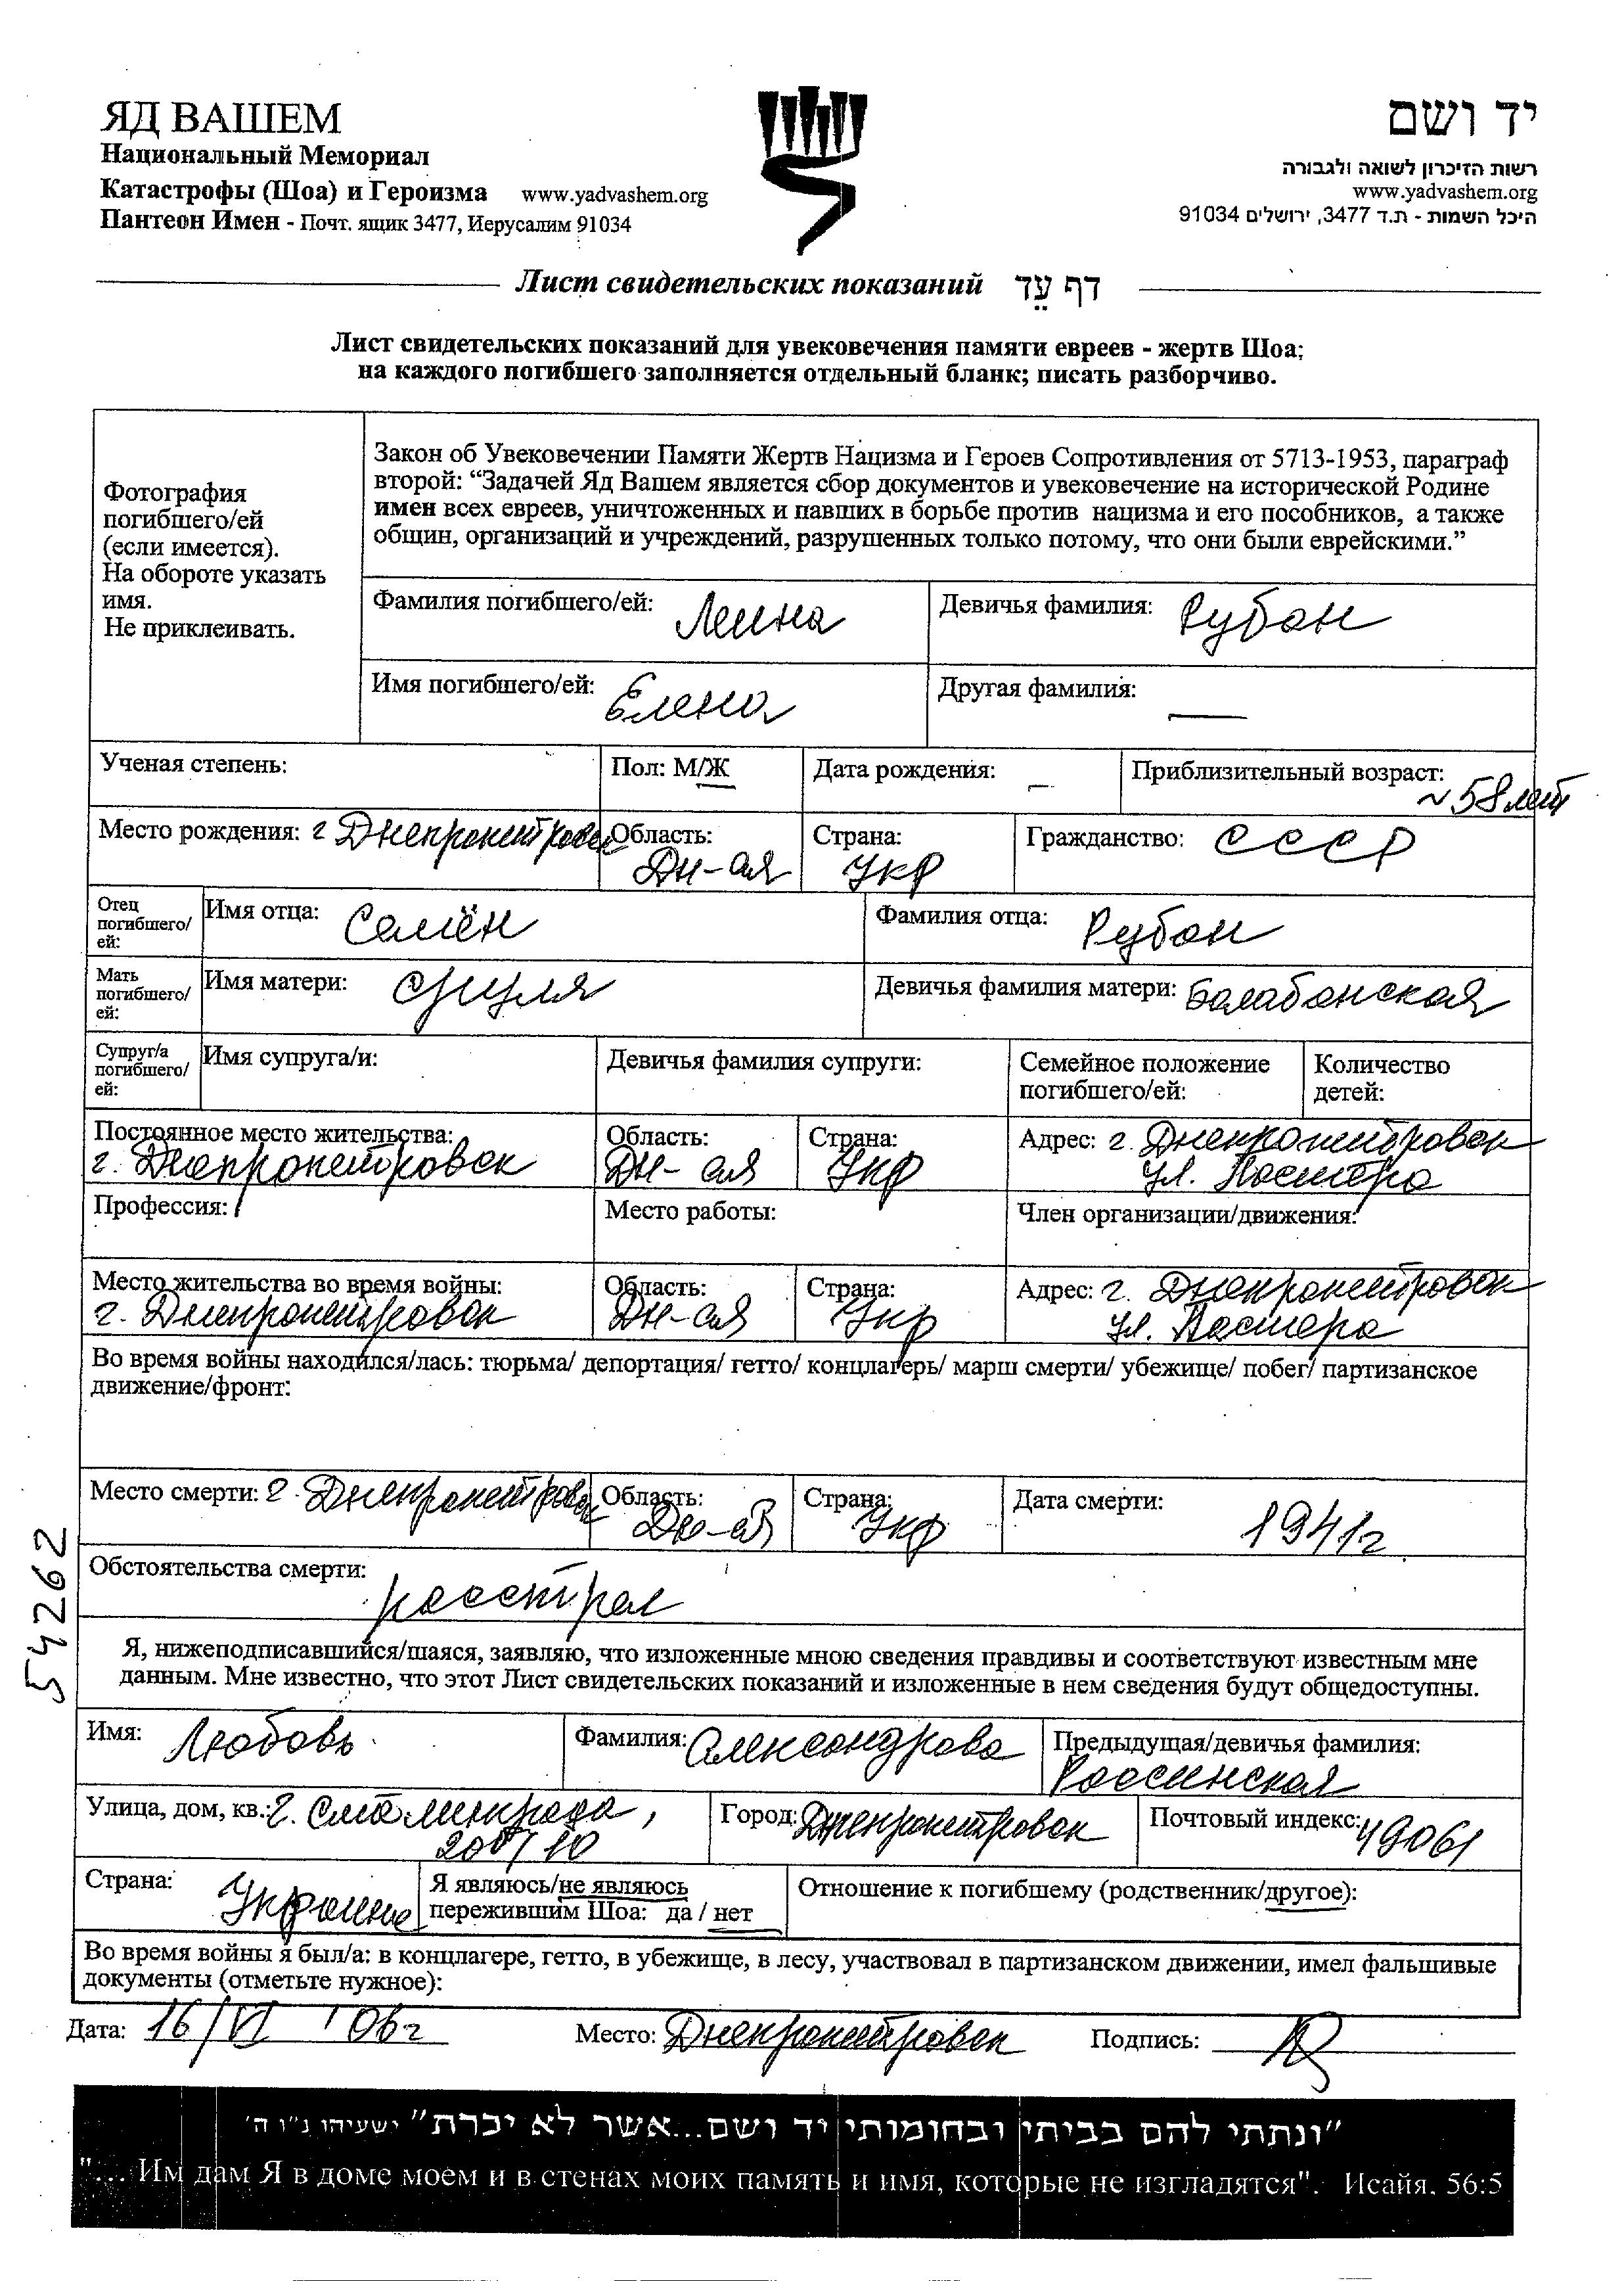 ЯД ВАШЕМ
Национальный Мемориал
Катастрофы (Шоа) и Героизма www.yadvashem.org
Пантеон Имен - Почт. ящик 3477, Иерусалим 91034
יד ושם
רשות הזיכרון לשואה ולגבורה
www.yadvashem.org
היכל השמות - ת.ד 3477, ירושלים 91034
Лист свидетельских показаний דף עֵד
Лист свидетельских показаний для увековечения памяти евреев - жертв Шоа;
на каждого погибшего заполняется отдельный бланк; писать разборчиво.
Фотография
погибшего/ей
(если имеется).
На обороте указать
имя.
Не приклеивать.
Закон об Увековечении Памяти Жертв Нацизма и Героев Сопротивления от 5713-1953, параграф
второй: “Задачей Яд Вашем является сбор документов и увековечение на исторической Родине
имен всех евреев, уничтоженных и павших в борьбе против нацизма и его пособников, а также
общин, организаций и учреждений, разрушенных только потому, что они были еврейскими.”
Фамилия погибшего/ей: Девичья фамилия: Рубан
Имя погибшего/ей: Елена Другая фамилия: —
Ученая степень: Пол: М/Ж Дата рождения: – Приблизительный возраст:
~58 лет
Место рождения: г Днепропетровск Область: Дн-ая Страна: Укр Гражданство: СССР
Отец
погибшего/
ей:
Имя отца: Семён Фамилия отца: Рубан
Мать
погибшего/
ей:
Имя матери: Девичья фамилия матери: Балабанская
Супруг/а
погибшего/
ей:
Имя супруга/и: Девичья фамилия супруги: Семейное положение
погибшего/ей:
Количество
детей:
Постоянное место жительства:
г. Днепропетровск
Область:
Дн-ая
Страна:
Укр
Адрес: г. Днепропетровск
ул. Пастера
Профессия: Место работы: Член организации/движения:
Место жительства во время войны:
г. Днепропетровск
Область:
Дн-ая
Страна:
Укр
Адрес: г. Днепропетровск
ул. Пастера
Во время войны находился/лась: тюрьма/ депортация/ гетто/ концлагерь/ марш смерти/ убежище/ побег/ партизанское
движение/фронт:
Место смерти: г. Днепропетровск Область: Дн-ая Страна: Укр Дата смерти: 1941г
Обстоятельства смерти: расстрел
54262
Я, нижеподписавшийся/шаяся, заявляю, что изложенные мною сведения правдивы и соответствуют известным мне
данным. Мне известно, что этот Лист свидетельских показаний и изложенные в нем сведения будут общедоступны.
Имя: Любовь Фамилия: Александрова Предыдущая/девичья фамилия:
Россинская
Улица, дом, кв.: г. Сталинграда, Город: Днепропетровск Почтовый индекс: 49061
Страна: Украина
Я являюсь/не являюсь
пережившим Шоа: да / нет
Отношение к погибшему (родственник/другое):
Во время войны я был/а: в концлагере, гетто, в убежище, в лесу, участвовал в партизанском движении, имел фальшивые
документы (отметьте нужное):
Дата: 16/VI 06г Место: Днепропетровск Подпись:
"ונתתי להם בביתי ובחומותי יד ושם...אשר לא יכרת" ישעיהו נ"ו ה'
"... Им дам Я в доме моем и в стенах моих память и имя, которые не изгладятся". Исайя. 56:5